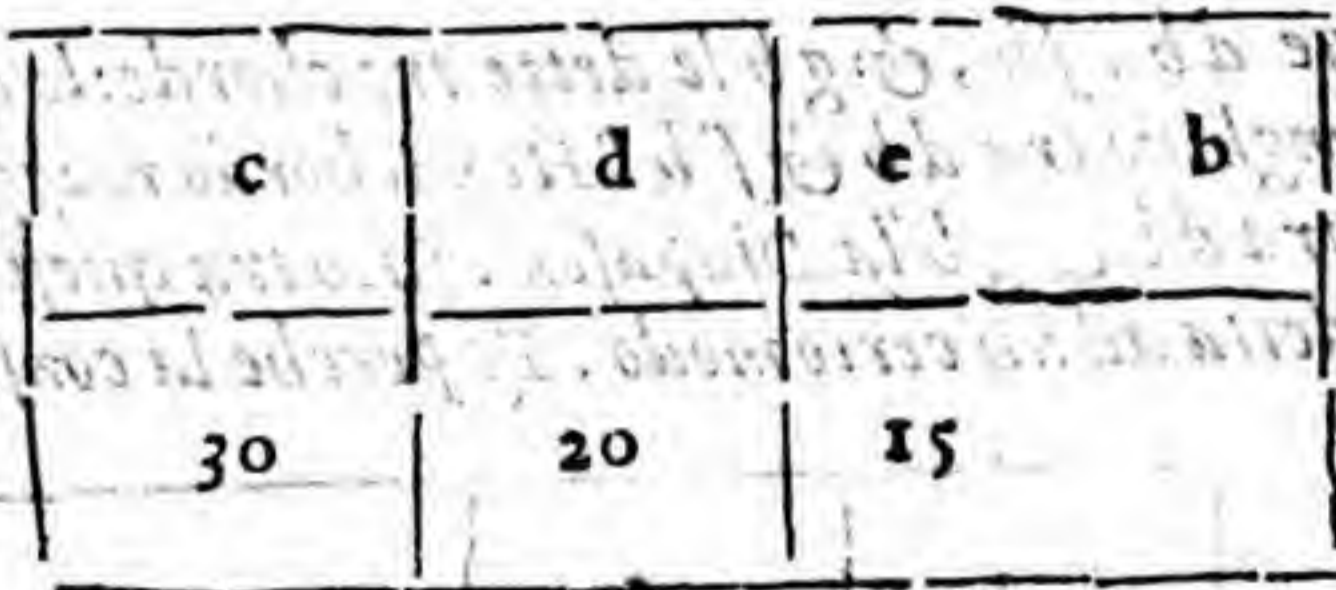 c d e b
30 20 15